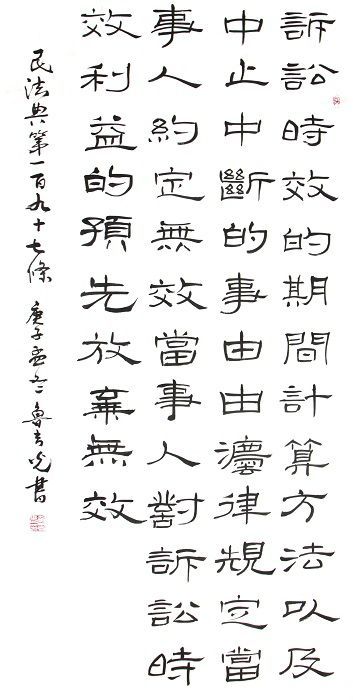 訴訟時效的期間計算方法以及
中止中斷的事由由灋律規定當
事人約定無效當事人對訴訟時
效利益的預先放棄無效
民法典第一百九十七條 庚子孟冬 魯 光書